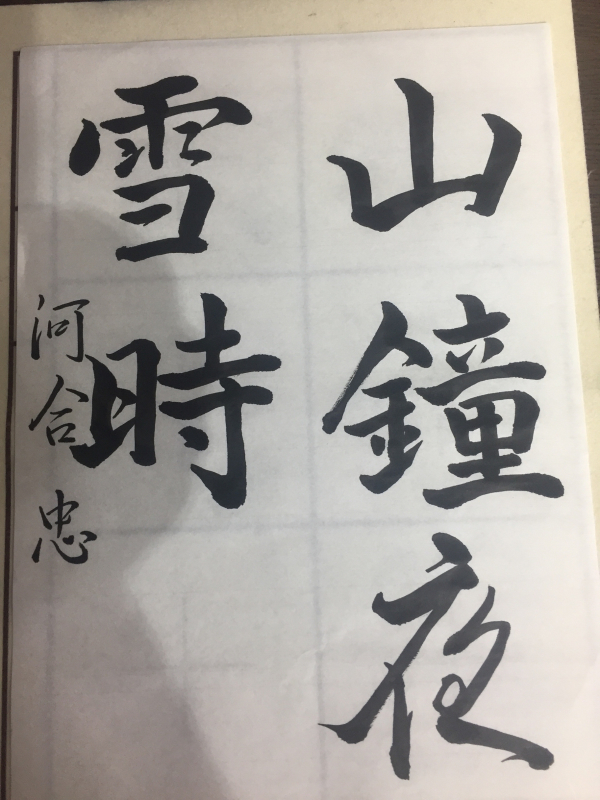 山鐘夜
雪時
河合忠